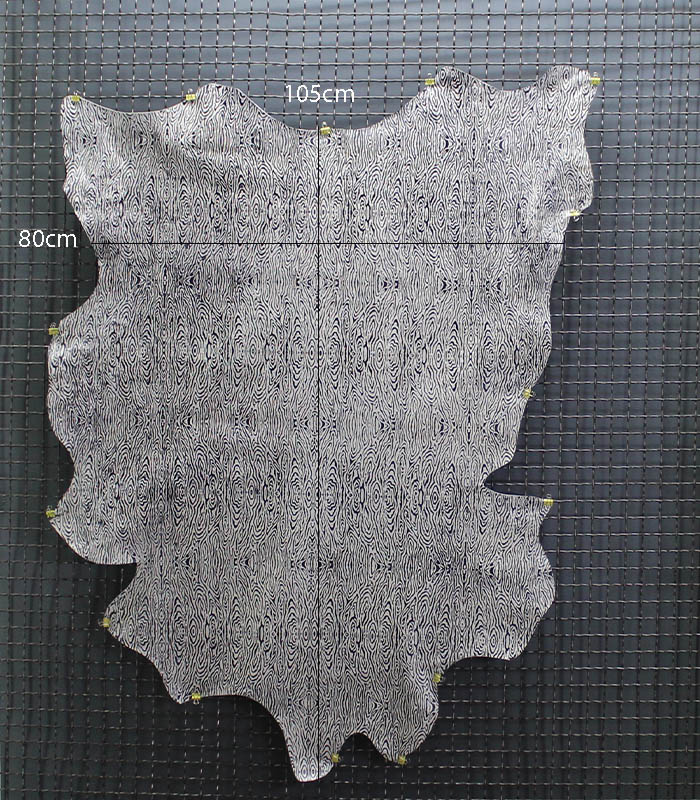 105cm
80cm